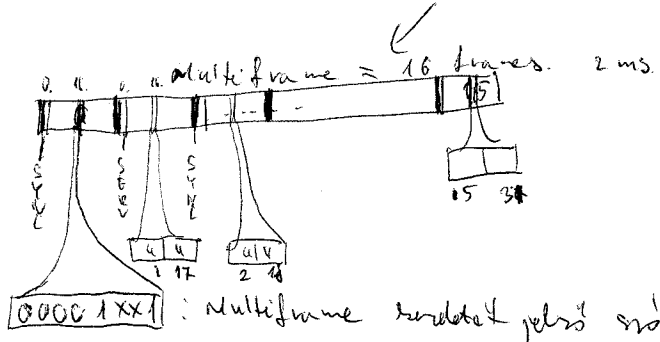 Multiframe = 16 frames. 2 ms.
0. 16. 0. 16.
15
SYNC
SERV
SYNC
15 31
4 4
1 17
4 4
2 18
0000 1XX1 : Multiframe kezdetét jelző szó